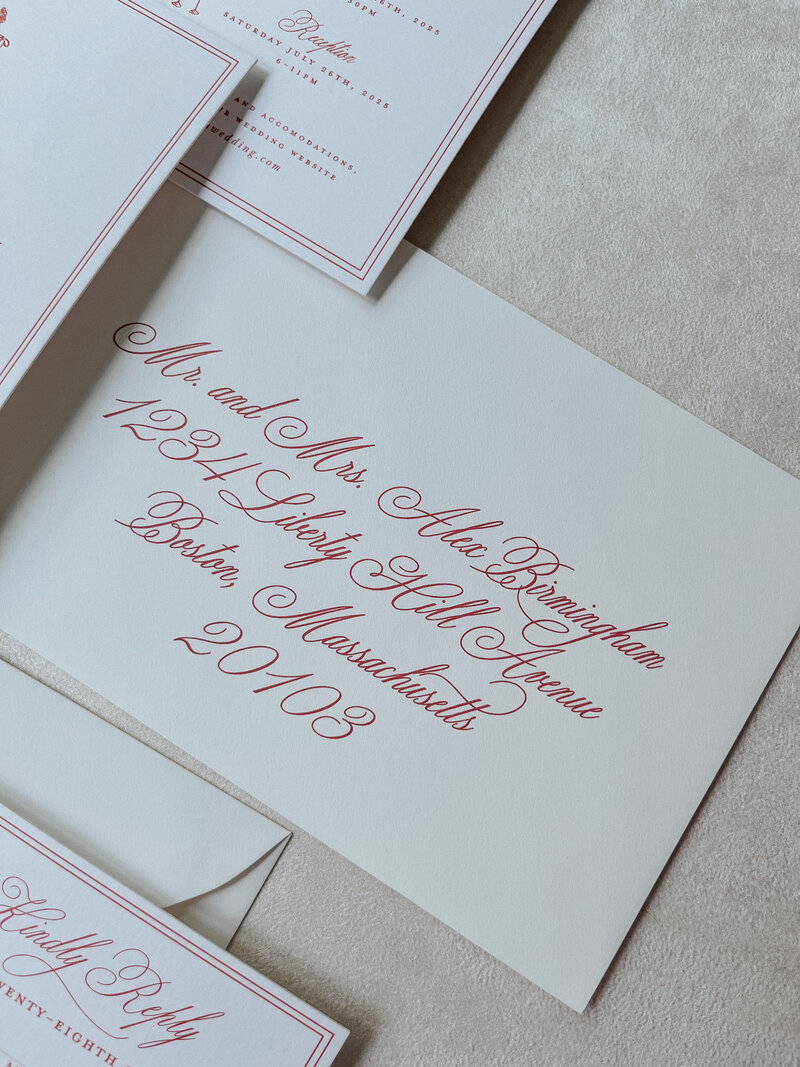 6TH, 2025
30PM
Reception
SATURDAY JULY 26TH, 2025
6-11PM
AND ACCOMODATIONS,
WEDDING WEBSITE
wedding.com
Mr. and Mrs. Alex Birmingham
1234 Liberty Hill Avenue
Boston, Massachusetts
20103
Kindly Reply
TWENTY-EIGHTH